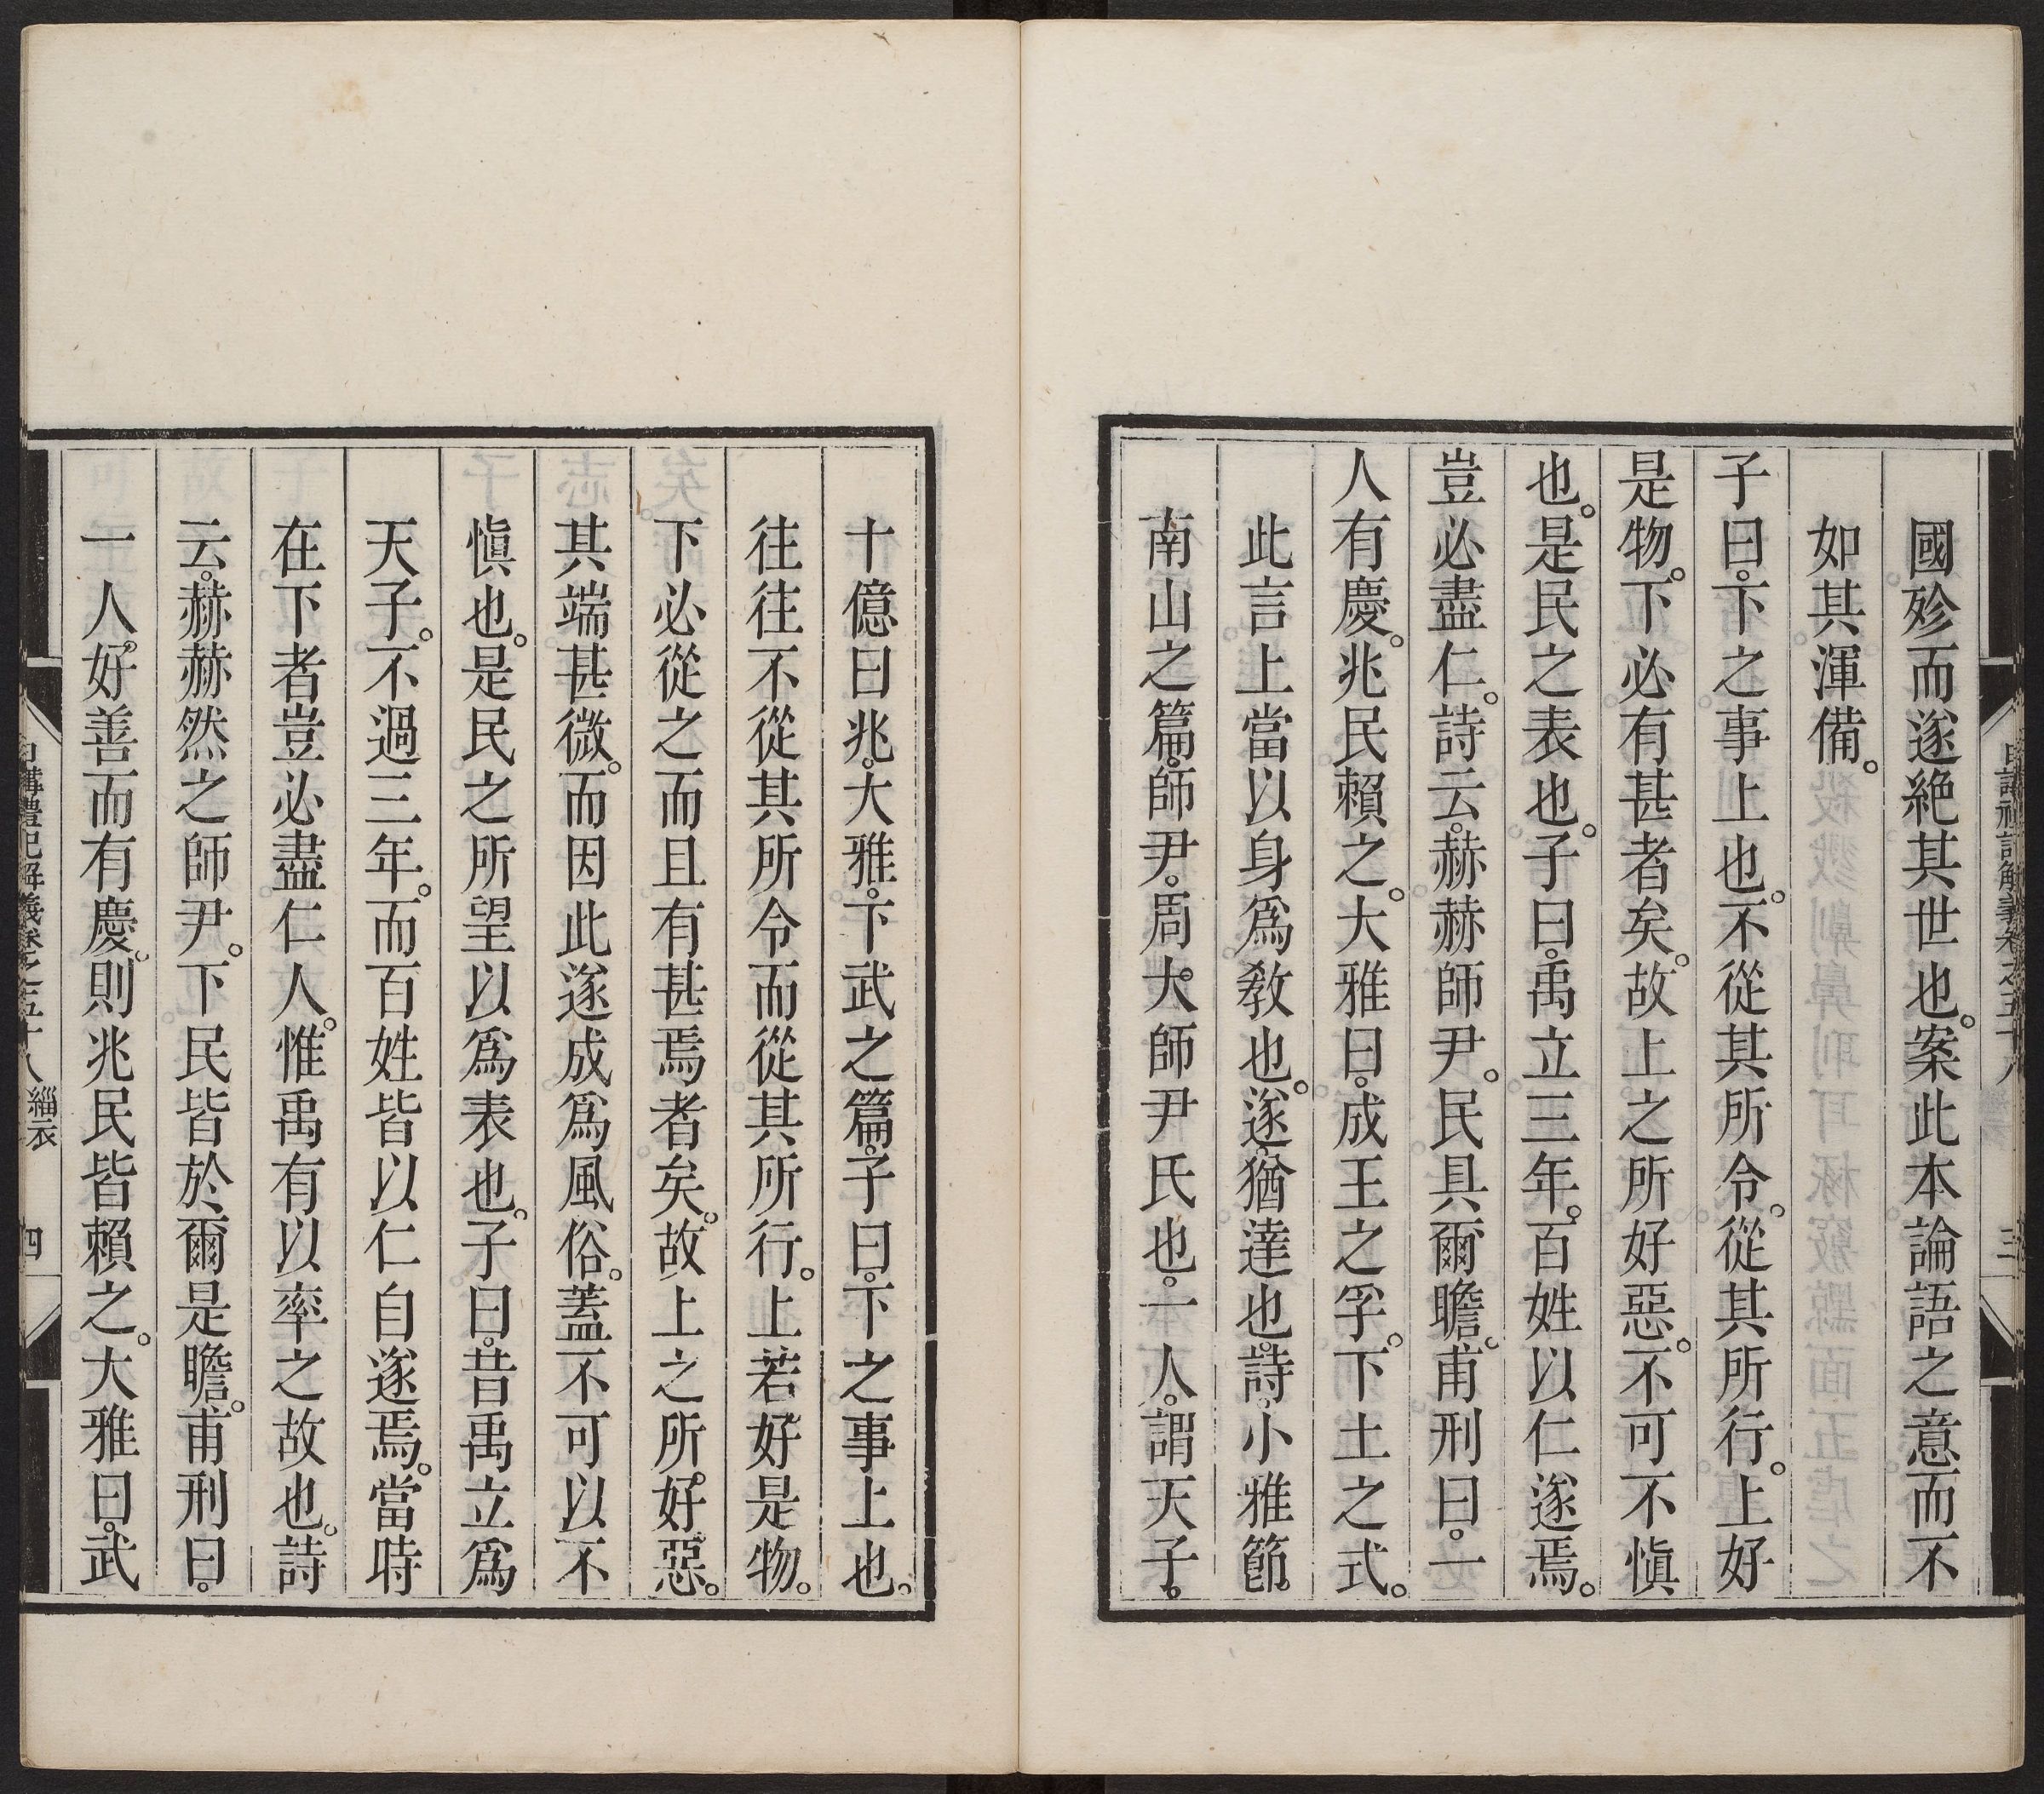 國殄而遂絶其世也。案此本論語之意而不
如其渾備。
子曰。下之事上也。不從其所令。從其所行。上好
是物。下必有甚者矣。故上之所好惡。不可不愼
也。是民之表也。子曰。禹立三年。百姓以仁遂焉。
豈必盡仁。詩云。赫赫師尹。民具爾瞻。甫刑曰。一
人有慶。兆民賴之。大雅曰。成王之孚。下土之式。
此言上當以身爲敎也。遂。猶達也。詩。小雅節
南山之篇。師尹。周大師尹氏也。一人。謂天子。
十億曰兆。大雅。下武之篇。子曰。下之事上也。
往往不從其所令而從其所行。上若好是物。
下必從之而且有甚焉者矣。故上之所好惡。
其端甚微。而因此遂成爲風俗。蓋不可以不
愼也。是民之所望以爲表也。子曰。昔禹立爲
天子。不過三年。而百姓皆以仁自遂焉。當時
在下者豈必盡仁人。惟禹有以率之故也。詩
云。赫赫然之師尹。下民皆於爾是瞻。甫刑曰。
一人好善而有慶。則兆民皆賴之。大雅曰。武
日講禮記解義卷之五十八 緇衣 四